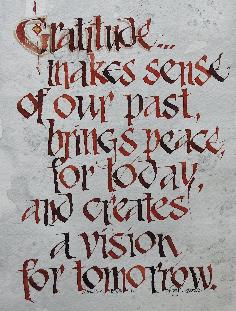 Gratitude...
makes sense
of our past,
brings peace
for today,
and creates
a vision
for tomorrow.